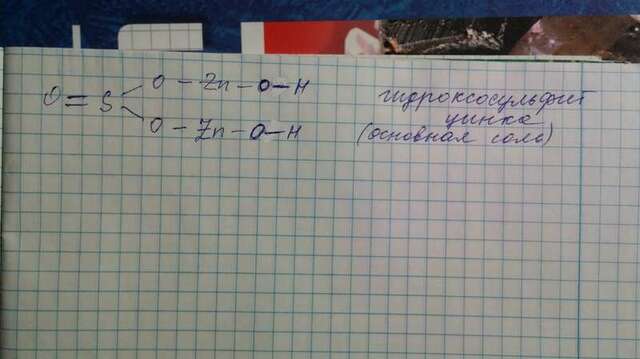 O = S
O - Zn - O - H
O - Zn - O - H
гидроксосульфит
цинка
(основная соль)